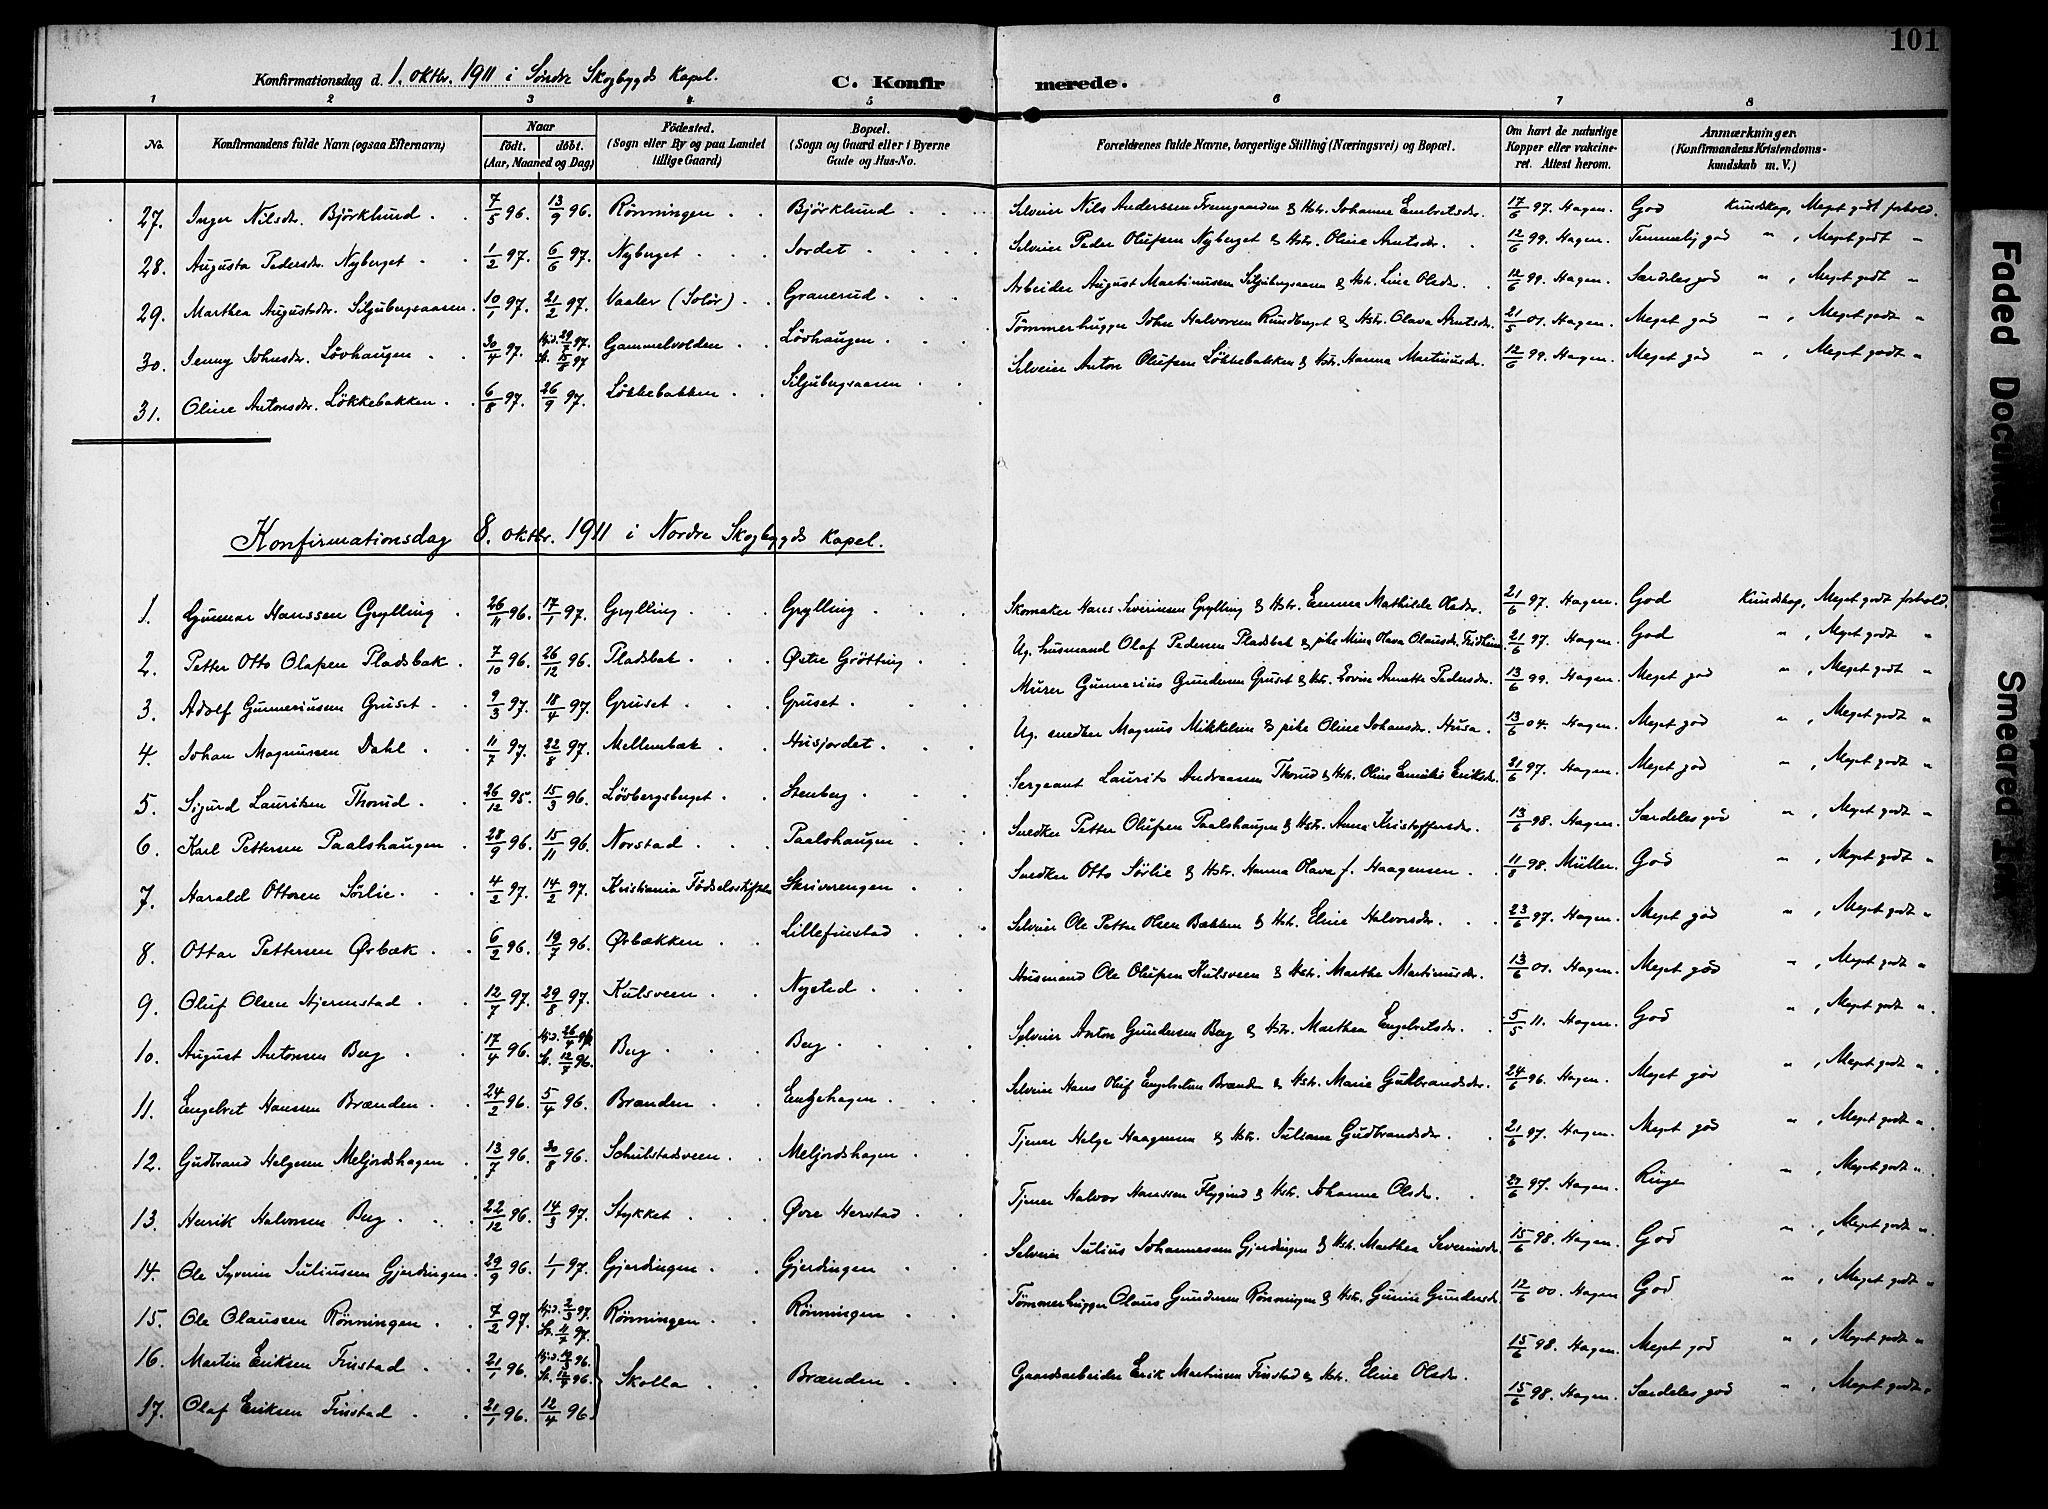 101
Konfirmationsdag d. 1. oktbr. 1911 i Söndre Skogbygds Kapel.
C. Konfirmerede.
1 2 3 4 5 6 7 8
No. | Konfirmandens fulde Navn (ogsaa Efternavn) | Naar födt. döbt. (Aar, Maaned og Dag) | Födested. (Sogn eller By og paa Landet tillige Gaard) | Bopæl. (Sogn og Gaard eller i Byerne Gade og Hus-No. | Forældrenes fulde Navne, borgerlige Stilling (Næringsvei) og Bopæl. | Om havt de naturlige Kopper eller vakcineret. Attest herom. | Anmærkninger. (Konfirmandens Kristendomskundskab m. V.)
27. Inger Nilsdr. Björklund . 7/5 96. 13/9 96. Rönningen . . Björklund . . Selveier Nils Anderssen Fremgaarden & Hstr. Johanne Embretsdr. 17/6 97. Hagen. God Kundskap, Meget godt forhold.
28. Augusta Pedersdr. Nyberget . . 1/2 97. 6/6 97. Nyberget . . . Jordet . . . Selveier Peder Olufsen Nyberget & Hstr. Oline Arntsdr. . 12/6 99. Hagen. Temmelig god " , Meget godt "
29. Marthea Augustsdr. Siljubergsaasen. 10/1 97. 21/2 97. Vaaler (Solör) . . Granerud . . . Arbeider August Martinussen Siljubergsaasen & Hstr. Line Olsdr. . 12/6 99. Hagen. Særdeles god " , Meget godt "
30. Jenny Johnsdr. Lövhaugen . . 30/4 97. Hjd. 29/7 97. St. 15/8 97 Gammelvolden . . Lövhaugen . . . Tömmerhugger John Halvorsen Rundberget & Hstr. Olava Arntsdr. 21/5 01. Hagen. Meget god " , Meget godt "
31. Oline Antonsdr. Lökkebakken . . 6/8 97. 26/9 97. Lökkebakken . . Siljubergsaasen . . Selveier Anton Olufsen Lökkebakken & Hstr. Hanna Martinusdr. 12/6 99. Hagen. Meget god " , Meget godt "
Konfirmationsdag 8. oktbr. 1911 i Nordre Skogbygds Kapel.
1. Gunnar Hanssen Grylling . 26/11 96. 17/1 97. Grylling . . Grylling . . . Skomaker Hans Severinsen Grylling & Hstr. Emma Mathilde Olsdr. 21/6 97. Hagen. God Kundskap, Meget godt forhold.
2. Petter Otto Olafsen Pladsbak . 7/10 96. 26/12 96. Pladsbak . . . Østre Grötting . Ug. husmand Olaf Pedersen Pladsbak & pike Mina Olava Olausdr. Fridheim. 21/6 97. Hagen. God " , Meget godt "
3. Adolf Gunneriusen Gruset . . 9/3 97. 18/4 97. Gruset . . . Gruset . . . Murer Gunnerius Gundersen Gruset & Hstr. Lovise Annette Pedersdr. 13/6 99. Hagen. Meget god " , Meget godt "
4. Johan Magnussen Dahl . . 11/7 97. 22/8 97. Mellembæk . . Husjordet . . . Ug. snedker Magnus Mikkelsen & pike Oline Johansdr. Husa . 13/6 04. Hagen. Meget god " , Meget godt "
5. Sigurd Lauritsen Thorud . . 26/12 95. 15/3 96. Lövbergsberget . . Stenberg . . . Sergeant Laurits Andreassen Thorud & Hstr. Oline Emilie Eriksdr. 21/6 97. Hagen. Meget god " , Meget godt "
6. Karl Pettersen Paalshaugen . 28/9 96. 15/11 96. Norstad . . . Paalshaugen . . Snedker Petter Olufsen Paalshaugen & Hstr. Anna Kristoffersdr. . 13/6 98. Hagen. Særdeles god " , Meget godt "
7. Harald Ottosen Sörlie . . . 4/2 97. 14/2 97. Kristiania Födselsstiftelse Skriverengen . . Snedker Otto Sörlie & Hstr. Hanna Olava f. Haagensen . . 11/6 98. Müller. God " , Meget godt "
8. Ottar Pettersen Ørbæk . . 6/2 96. 19/7 96. Ørbækken . . Lillefinstad . . . Selveier Ole Petter Olsen Bækken & Hstr. Eline Halvorsdr. . . 23/6 97. Hagen. Meget god " , Meget godt "
9. Oluf Olsen Hjermstad . . 12/7 97. 29/8 97. Kulsveen . . Nysted . . . Husmand Ole Olufsen Kulsveen & Hstr. Marthe Martinusdr. 13/6 01. Hagen. Meget god " , Meget godt "
10. August Antonsen Berg . . 17/4 96. Hjd. 26/4 96. St. 12/7 96. Berg . . . Berg . . . . Selveier Anton Gundersen Berg & Hstr. Marthea Engebretsdr. . 5/5 11. Hagen. God " , Meget godt ".
11. Engebret Hanssen Brænden . . 24/2 96. 5/4 96. Brænden . . Engehagen . . . Selveier Hans Oluf Engebretsen Brænden & Hstr. Marie Gulbrandsdr. 24/6 96. Hagen. Meget god " , Meget godt ".
12. Gudbrand Helgesen Meljordshagen . 13/7 96. 30/8 96. Schulstadsveen . . Meljordshagen . . Tjener Helge Haagensen & Hstr. Juliane Gudbrandsdr. . 21/6 97. Hagen. Meget god " , Meget godt ".
13. Henrik Halvorsen Berg . . . 22/12 96. 14/3 97. Stykket . . . Øvre Herstad . . Tjener Halvor Hanssen Flygind & Hstr. Johanne Olsdr. . 97. Hagen. Ringe " , Meget godt ".
14. Ole Syverin Juliussen Gjerdingen . 29/9 96. 1/1 97. Gjerdingen . . Gjerdingen . . Selveier Julius Johannessen Gjerdingen & Hstr. Marthea Severinsdr. 15/6 98. Hagen. God " , Meget godt ".
15. Ole Olaussen Rönningen . . 7/2 97. Hjd. 2/3 97. St. 11/7 97. Rönningen . . Rönningen . . Tömmerhugger Olaus Gundersen Rönningen & Hstr. Gunine Gundersdr. 12/6 00. Hagen God " , Meget godt "
16. Martin Eriksen Finstad . . 21/1 96. Skolla . . Brænden . . Gaardsarbeider Erik Martinsen Finstad & Hstr. Eline Olsdr. 15/6 98. Hagen. Meget god " , Meget godt "
17. Olaf Eriksen Finstad . . 21/1 96. 12/4 96. 15/6 98. Hagen. Særdeles god " , Meget godt "
Faded Document
Smeared Ink